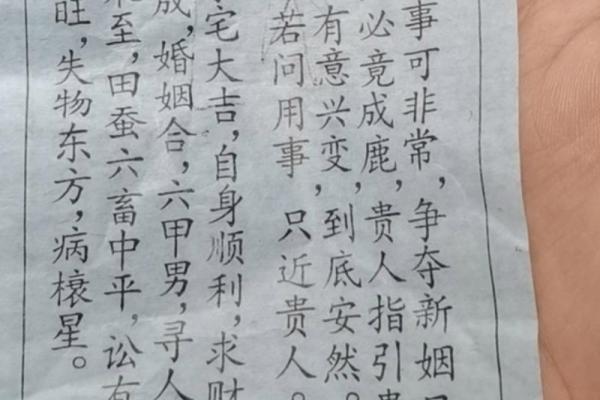 事可非常，争夺新姻
必竟成鹿，贵人指引
有意兴变，到底安然。
若问用事，只近贵人。
宅大吉，自身顺利，求财
成，婚姻合，六甲男，寻人
至，田蚕六畜中平，讼有
旺，失物东方，病榱星。